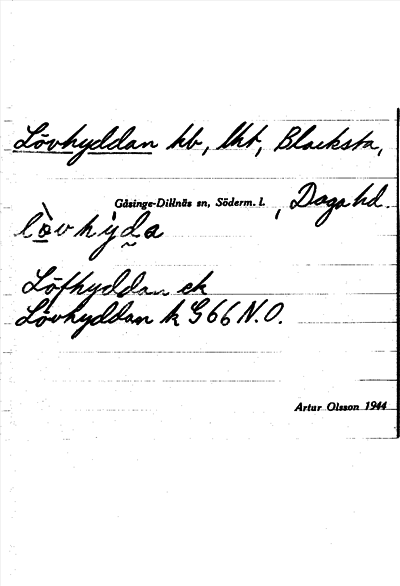 Lövhyddan hb, lht, Blacksta,
Gåsinge-Dillnäs sn, Söderm. l. , Daga hd.
lòvhỳda
Löfhyddan ek
Lövhyddan k G 66 N.O.
Artur Olsson 1944